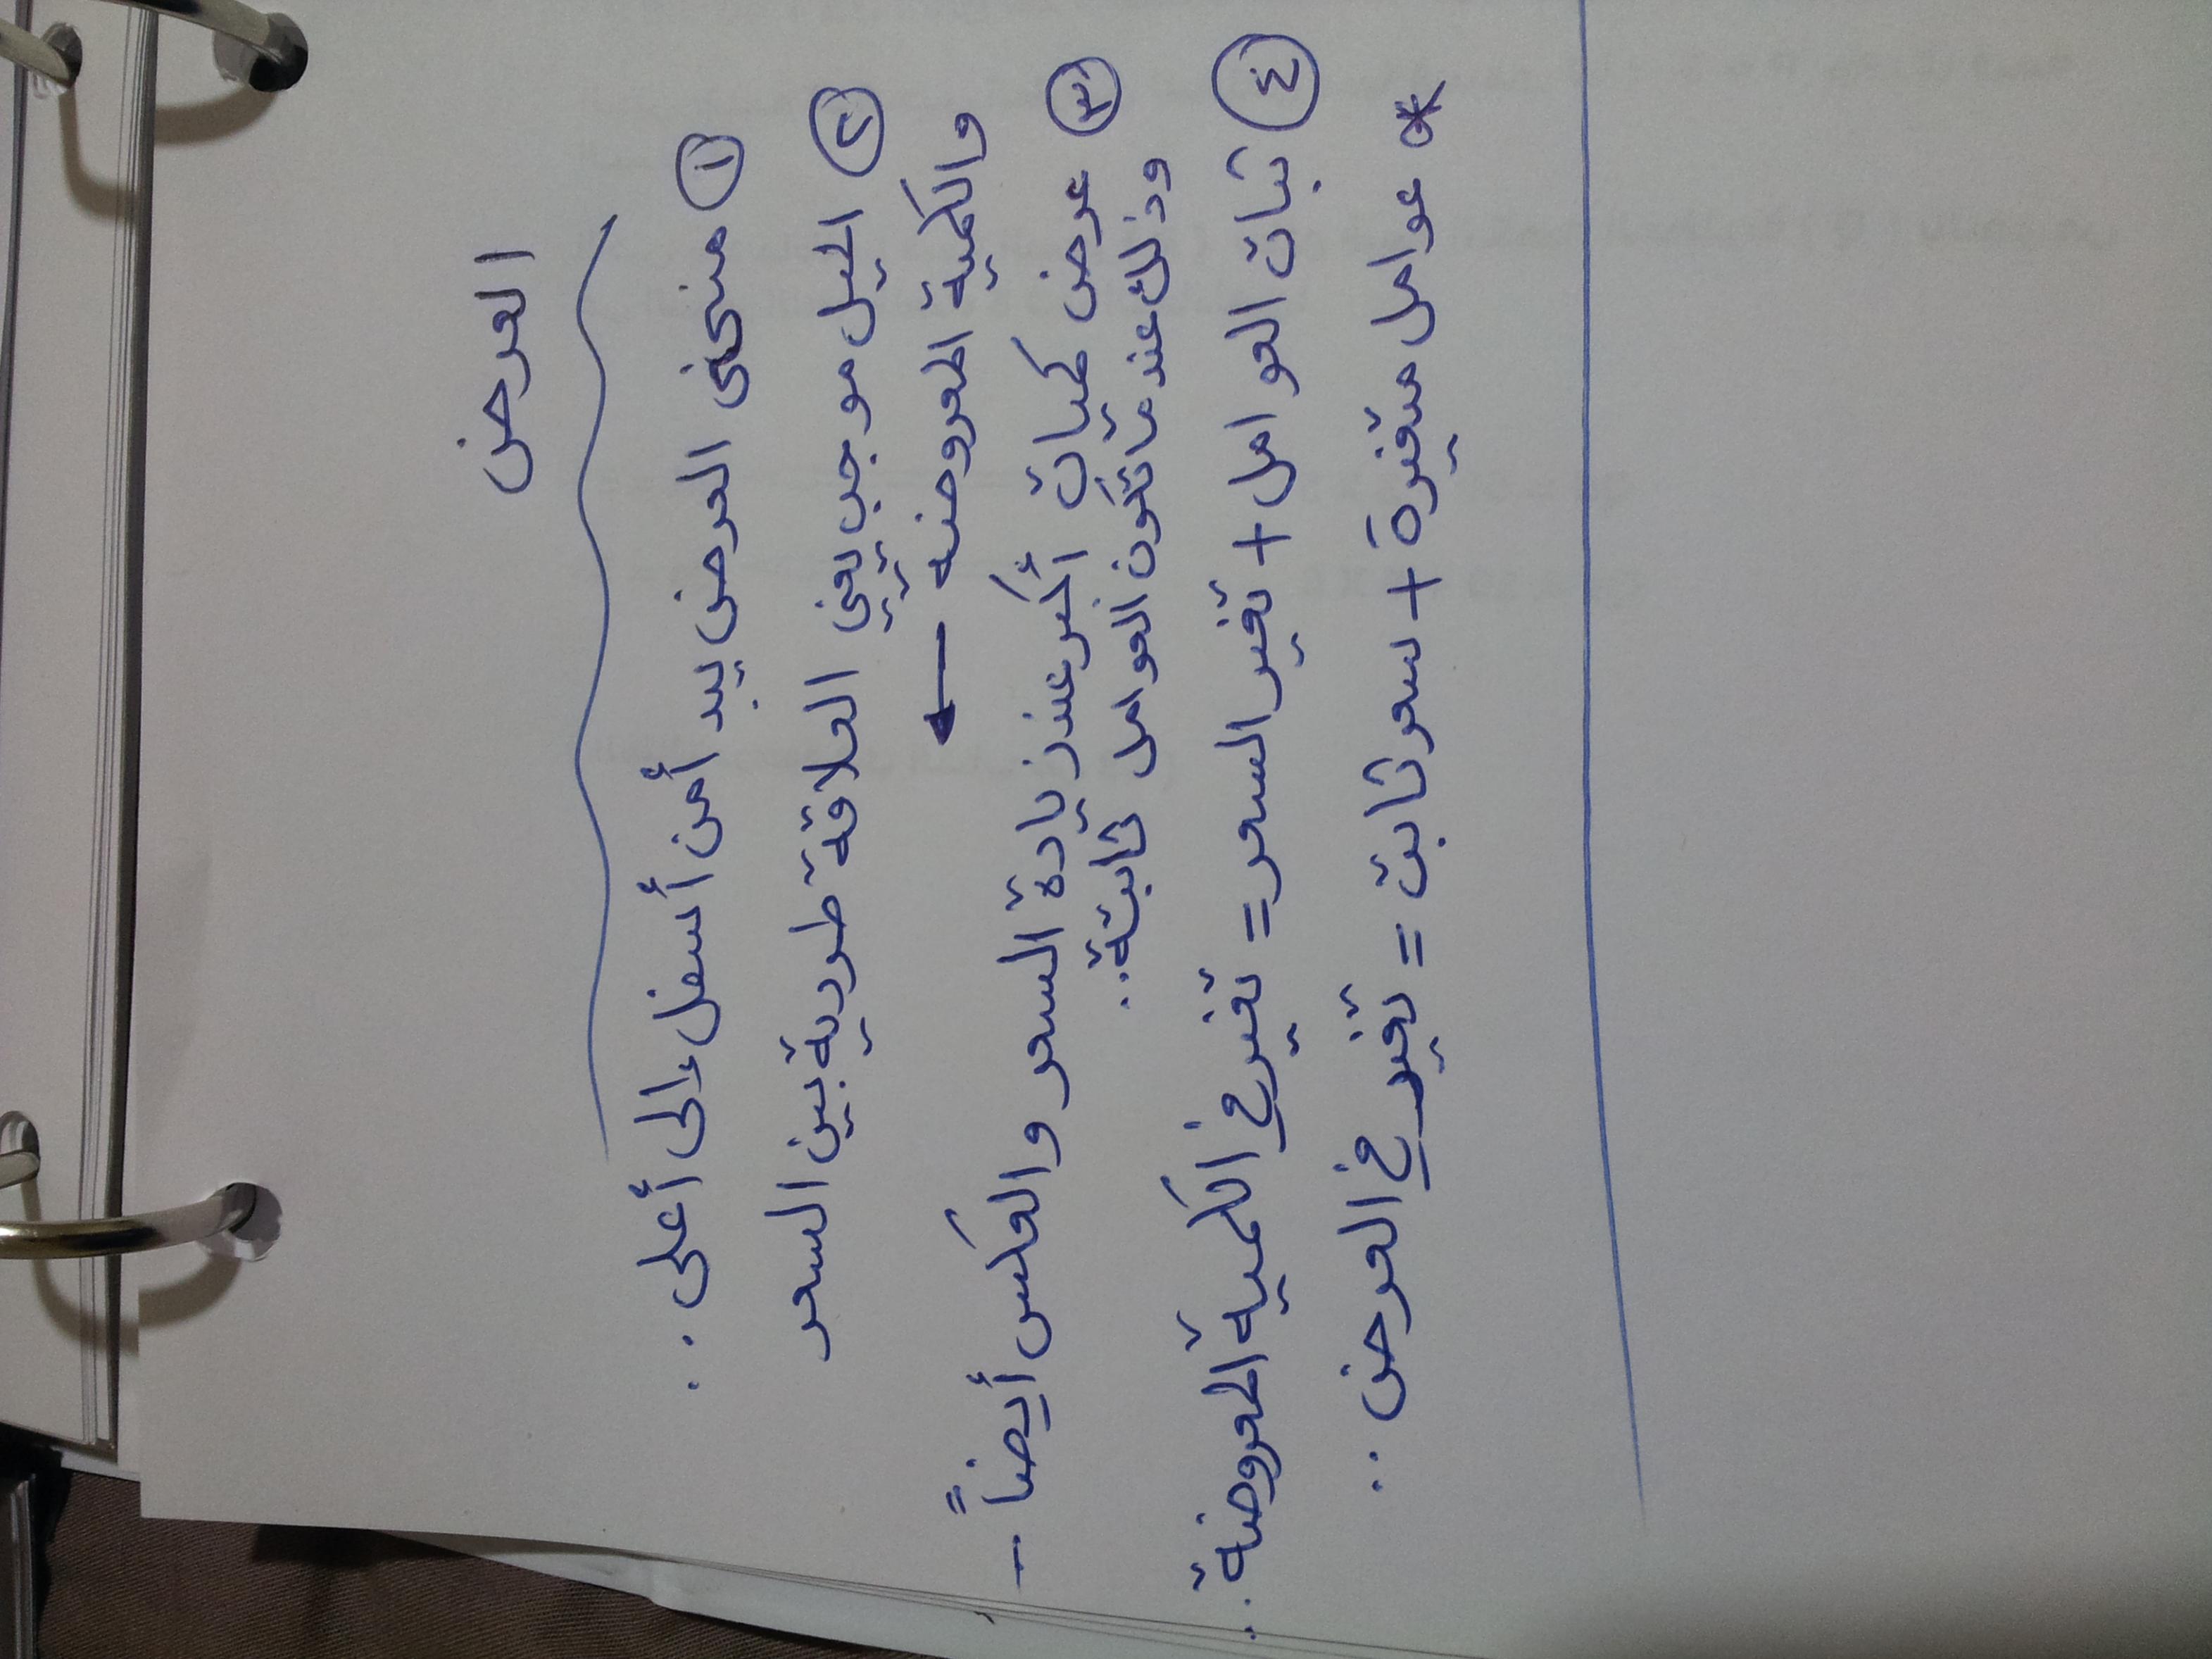 العرض
① منحنى العرض يبدأ من أسفل إلى أعلى ..
② الميل موجب يعني العلاقة طردية بين السعر
والكمية المعروضه ←
③ عرض كميات أكبر عند زيادة السعر والعكس أيضاً -
وذلك عندما تكون العوامل ثابتة ..
④ ثبات العوامل + تغير السعر = تغير في الكمية المعروضة ..
* عوامل متغيرة + سعر ثابت = تغير في العرض ..